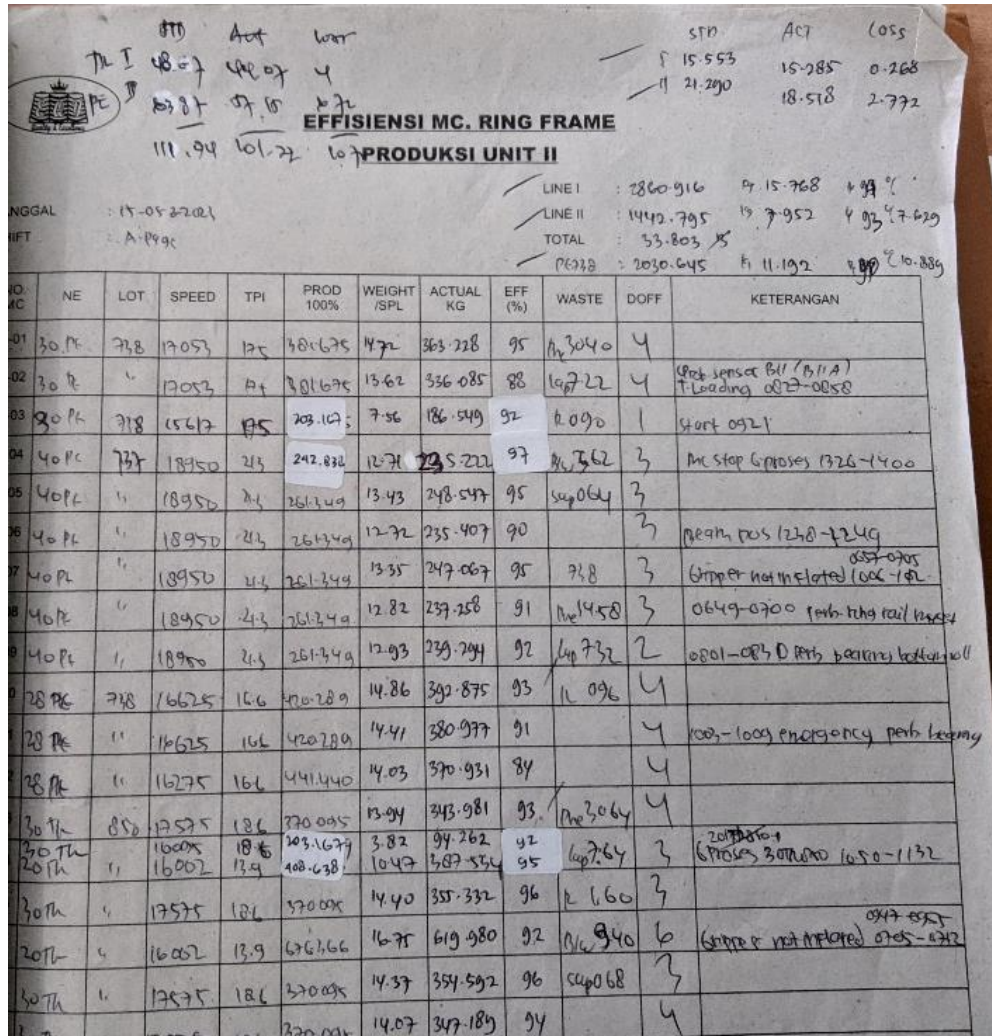 STD Act Loss
Th I 48.07 44.07 4
PE II 63.87 57.15 6.72
111.94 101.22 10.7
STD ACT LOSS
I 15.553 15.285 0.268
II 21.290 18.518 2.772
EFFISIENSI MC. RING FRAME
PRODUKSI UNIT II
LINE I : 2860.916 15.768 93 %
LINE II : 1442.795 7.952 93 % 7.629
TOTAL : 33.803
PE738 : 2030.645 11.192 10.889
NGGAL : 15-05-2023
IFT : A-Pagi
NO. MC NE LOT SPEED TPI PROD 100% WEIGHT /SPL ACTUAL KG EFF (%) WASTE DOFF KETERANGAN
01 30 PE 738 17053 17.5 381.675 14.72 363.228 95 Pne 3040 4
02 30 PE " 17053 17.5 381.675 13.62 336.085 88 Lap 7.22 4 Prob sensor B11 (B11A)
T.Loading 0827-0858
03 30 PE 738 15617 17.5 203.167 7.56 186.549 92 R 090 1 Start 0921
04 40 PE 737 18950 21.3 242.832 12.71 235.222 97 Blw 362 3 Mc stop G.proses 1326-1400
05 40 PE " 18950 21.3 261.349 13.43 248.547 95 Swp 064 3
06 40 PE " 18950 21.3 261.349 12.72 235.407 90 3 Beam pos 1238-1249
07 40 PE " 18950 21.3 261.349 13.35 247.067 95 738 3 Gripper not inflated 0657-0705
08 40 PE " 18950 21.3 261.349 12.82 237.258 91 Pne 14.58 3 0649-0700 perb ring rail
9 40 PE " 18950 21.3 261.349 12.93 239.294 92 Lap 732 2 0801-0830 perb bearing bottom roll
28 PE 738 16625 16.6 420.289 14.86 392.875 93 R 096 4
28 PE " 16625 16.6 420.289 14.41 380.977 91 4 1003-1009 emergency perb bearing
28 PE " 16275 16.6 441.440 14.03 370.931 84 4
30 Th 850 17575 18.6 370.095 13.94 343.981 93 Pne 3064 4
30 Th 16095 18.6 203.1679 3.82 94.262 92
20 Th " 16002 13.9 408.638 10.47 387.534 95 Lap 7.64 3 G.Proses 30Th 1050-1132
30 Th " 17575 18.6 370.095 14.40 355.332 96 R 1.60 3
20 Th " 16002 13.9 676.366 16.75 619.980 92 Blw 940 6 Gripper not inflated 0705-0712
30 Th " 17575 18.6 370.095 14.37 354.592 96 Swp 068 3
370.095 14.07 347.189 94 4